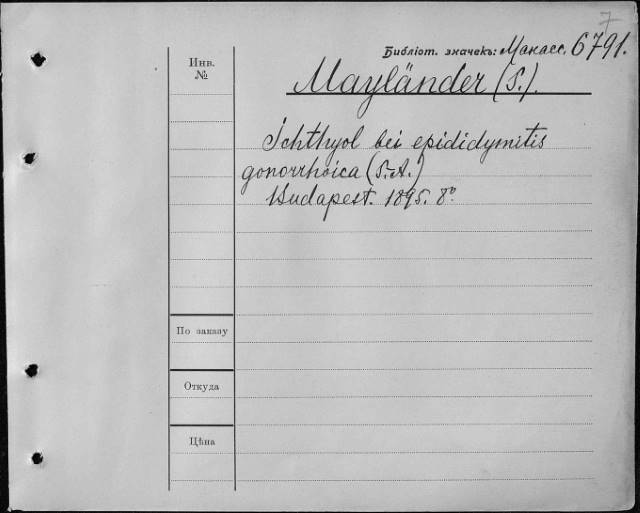 7
Библіот. значекъ: Макасс. 6791.
Инв.
№
Mayländer (S.).
Ichthyol bei epididymitis
gonorrhoica (S.A.)
Budapest. 1895. 8°.
По заказу
Откуда
Цѣна